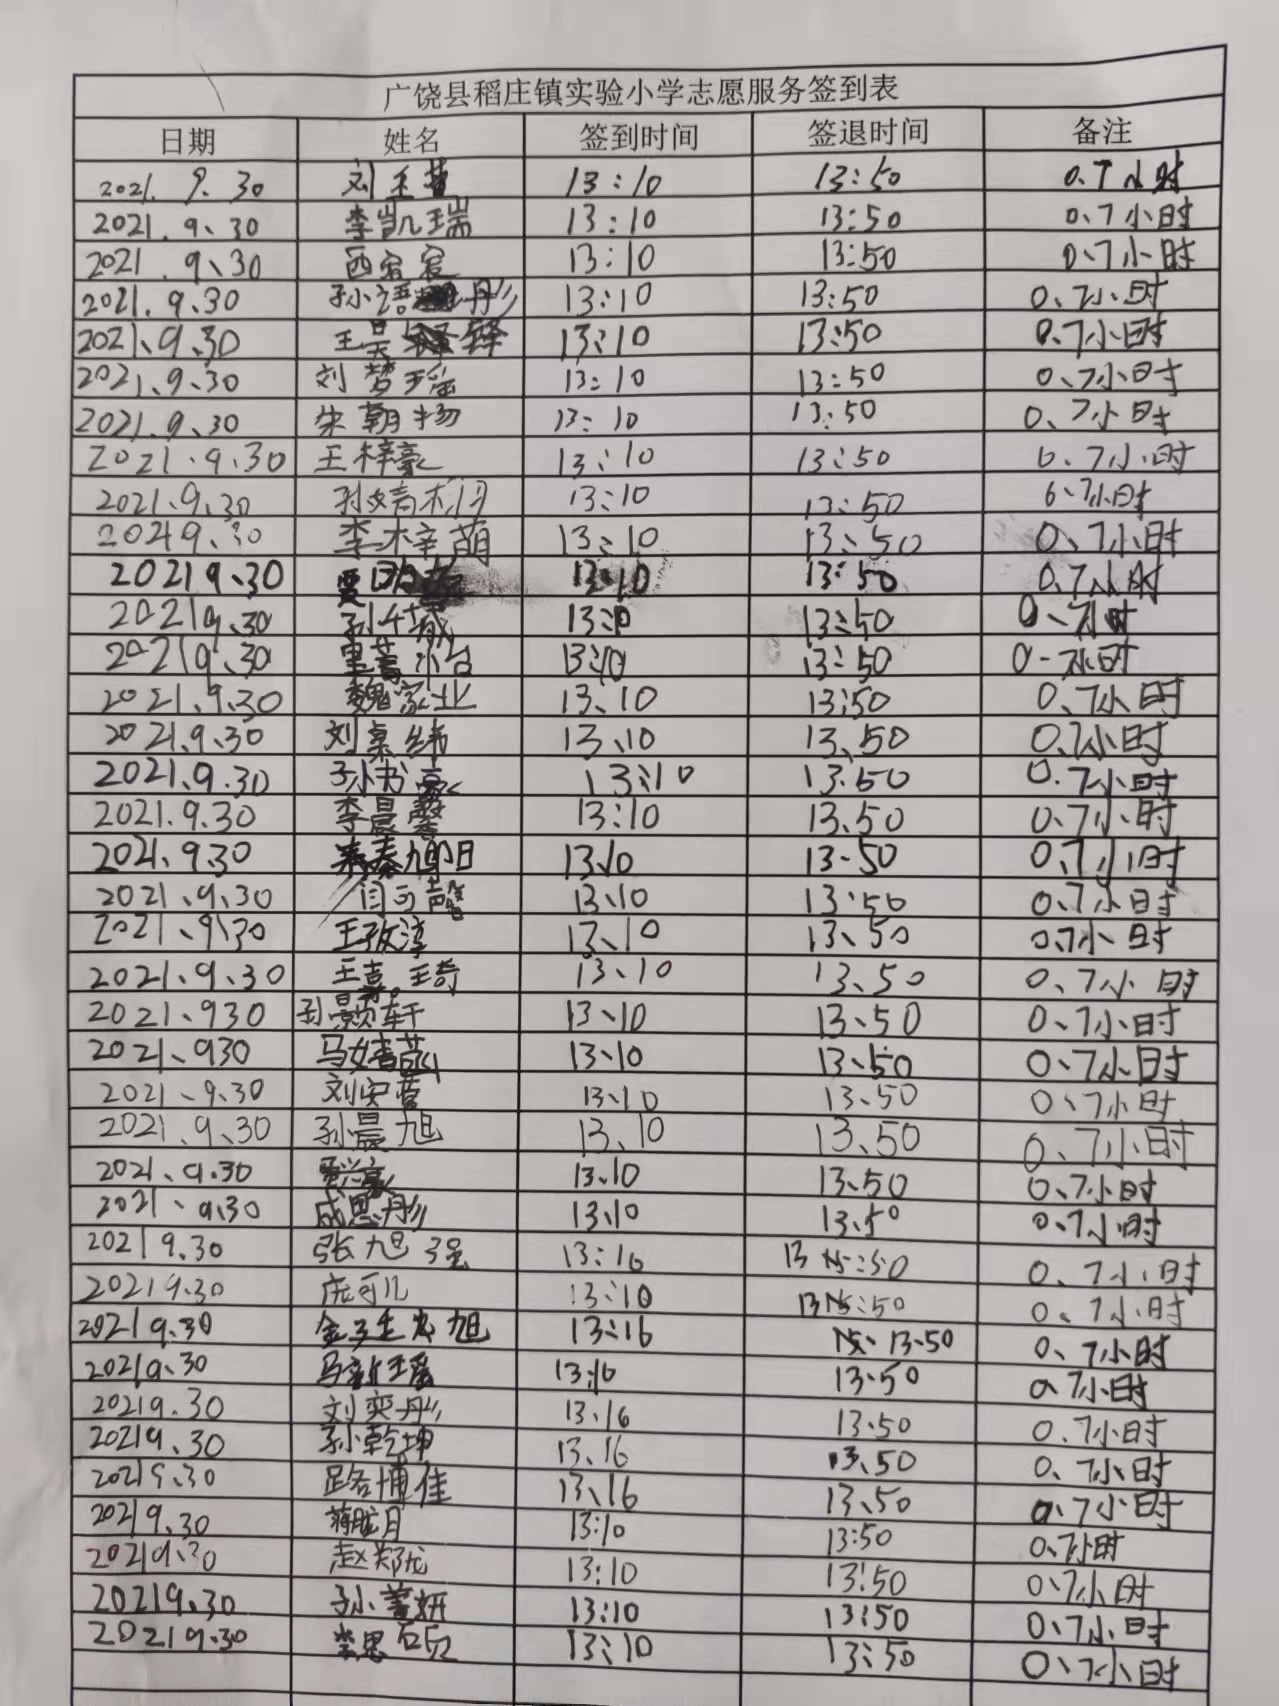 广饶县稻庄镇实验小学志愿服务签到表
日期 姓名 签到时间 签退时间 备注
2021. 9. 30 刘玉 13:10 13:50 0.7小时
2021. 9、30 李凯瑞 13:10 13:50 0.7小时
2021. 9、30 西 13:10 13:50 0.7小时
2021. 9.30 孙语彤 13:10 13:50 0.7小时
2021、9.30 王昊铎 13:10 13:50 0.7小时
2021、9.30 刘梦瑶 13:10 13:50 0、7小时
2021.9、30 朱朝扬 13:10 13:50 0、7小时
2021.9.30 王梓豪 13:10 13:50 0.7小时
2021.9.30 孙婧 13:10 13:50 0.7小时
20219.30 李梓萌 13:10 13:50 0、7小时
20219.30 13:10 13:50 0.7小时
20219.30 孙 13:10 13:50 0、7小时
20219.30 13:10 13:50 0-7小时
2021.9.30 魏家业 13、10 13:50 0.7小时
2021.9.30 刘 13、10 13、50 0.7小时
2021.9.30 孙书豪 13:10 13.50 0.7小时
2021.9.30 李晨馨 13:10 13.50 0.7小时
2021.9.30 秦旭日 13.10 13.50 0.7小时
2021.9.30 闫可馨 13、10 13.50 0.7小时
2021、9.30 王孜淳 13、10 13、50 0.7小时
2021、9.30 王嘉琦 13、10 13、50 0、7小时
2021、930 孙颢轩 13、10 13、50 0、7小时
2021、930 马婧 13、10 13、50 0、7小时
2021、9.30 刘安萱 13、10 13、50 0、7小时
2021、9、30 孙晨旭 13、10 13、50 0、7小时
2021、9.30 13、10 13、50 0、7小时
2021、9.30 成思彤 13、10 13、50 0、7小时
20219.30 张旭强 13:10 13:50 0、7小时
20219.30 庞可儿 13:10 13:50 0、7小时
20219.30 旭 13:16 13:50 0、7小时
20219.30 马新瑶 13:10 13.50 0.7小时
20219.30 刘奕彤 13.16 13.50 0.7小时
20219.30 孙乾坤 13、16 13、50 0、7小时
20219.30 路博佳 13、16 13、50 0.7小时
20219.30 蒋胧月 13:10 13:50 0.7小时
20219.30 赵郑龙 13:10 13:50 0.7小时
20219.30 孙萱妍 13:10 13:50 0、7小时
20219.30 李思硕 13:10 13:50 0、7小时